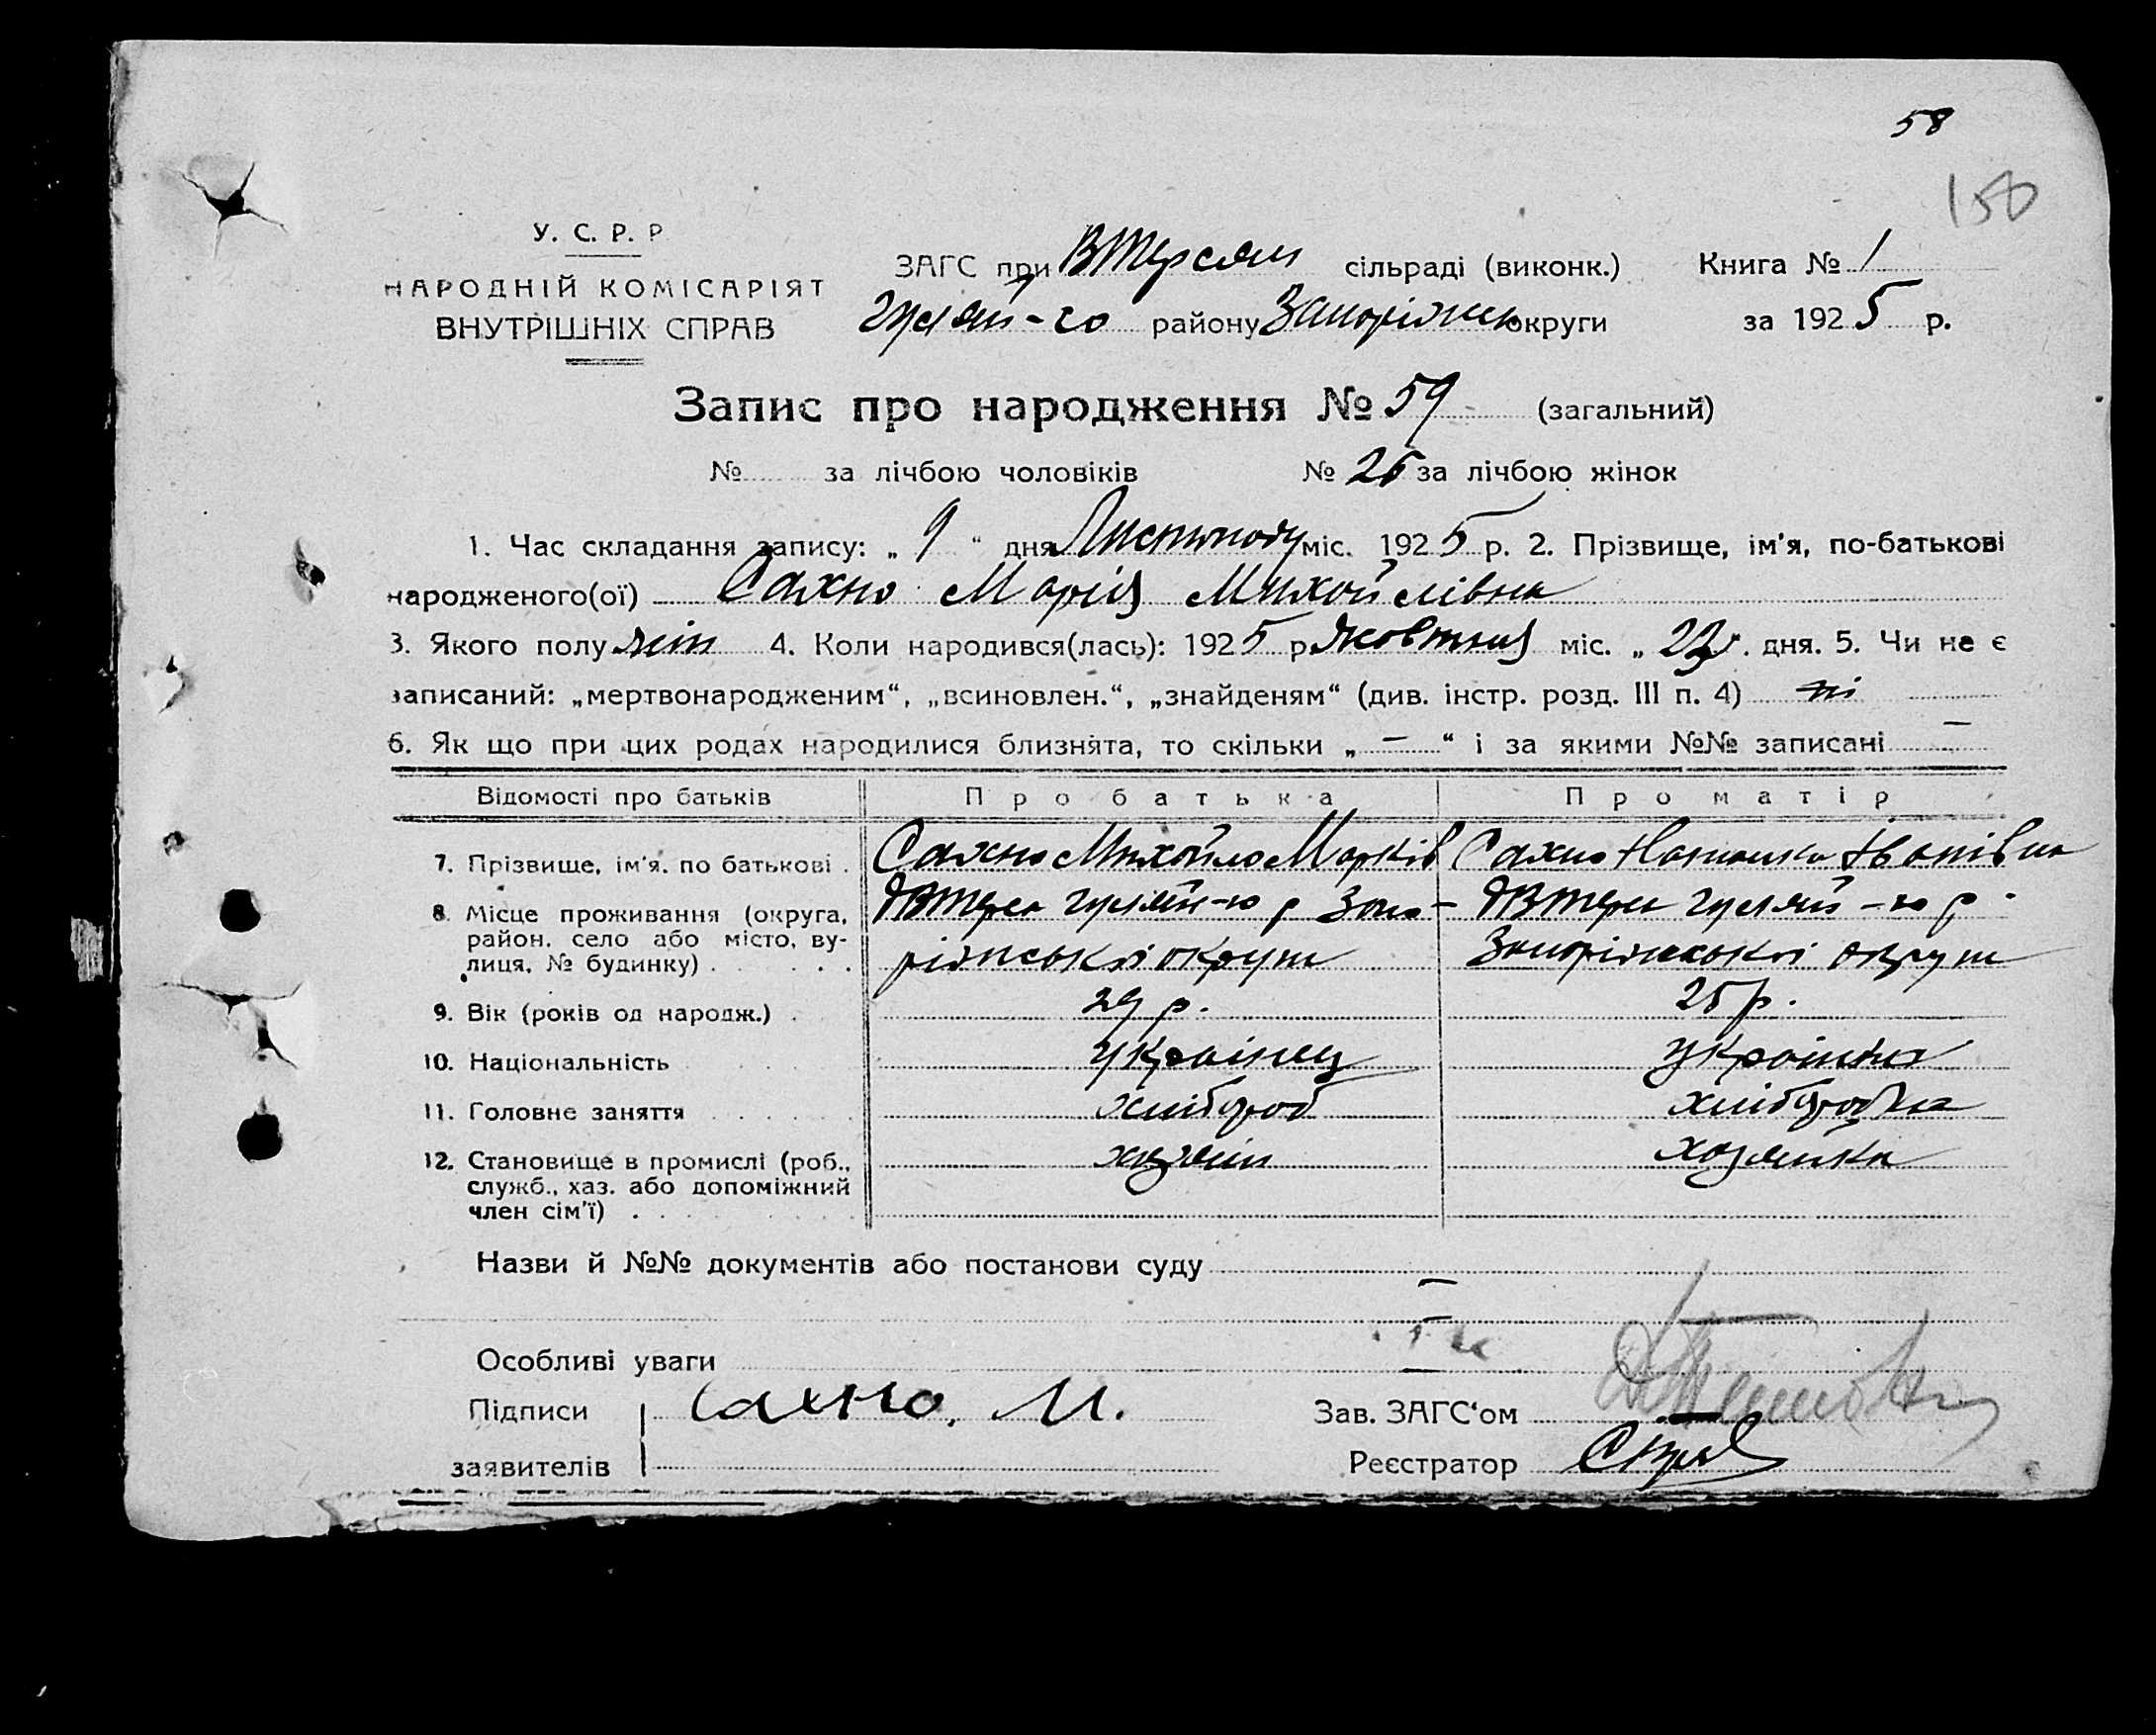 58
150
У. С. Р. Р
НАРОДНІЙ КОМІСАРІЯТ
ВНУТРІШНІХ СПРАВ
ЗАГС при ВТерсян сільраді (виконк.) Книга № 1
Гуляй-го району Запоріжськ округи за 1925 р.
Запис про народження № 59 (загальний)
№ за лічбою чоловіків № 26 за лічбою жінок
1. Час складання запису: „ 9 “ дня Листопаду міс. 1925 р. 2. Прізвище, ім'я, по-батькові
народженого(ої) Сахно Марія Михойлівна
3. Якого полу жін 4. Коли народився(лась): 1925 р. Жовтня міс. „ 23 . дня. 5. Чи не є
записаний: „мертвонародженим“, „всиновлен.“, „знайденям“ (див. інстр. розд. III п. 4) ні
6. Як що при цих родах народилися близнята, то скільки „ — “ і за якими №№ записані —
Відомості про батьків Про батька Про матір
7. Прізвище, ім'я, по батькові . Сахно Михойло Марків Сахно Іванівна
8. Місце проживання (округа, ВТерся Гуляй-го р Запо- ВТерся Гуляй-го р.
район, село або місто, ву-
лиця, № будинку) . ріжської округи Запоріжської округи
9. Вік (років од народж.) . 29 р. 25 р.
10. Національність українец українка
11. Головне заняття хлібороб хліборобка
12. Становище в промислі (роб., хазяін хазяйка
служб., хаз. або допоміжний
член сім'ї) .
Назви й №№ документів або постанови суду —
—
Особливі уваги —
Підписи Сахно. М. Зав. ЗАГС‘ом
заявителів Реєстратор